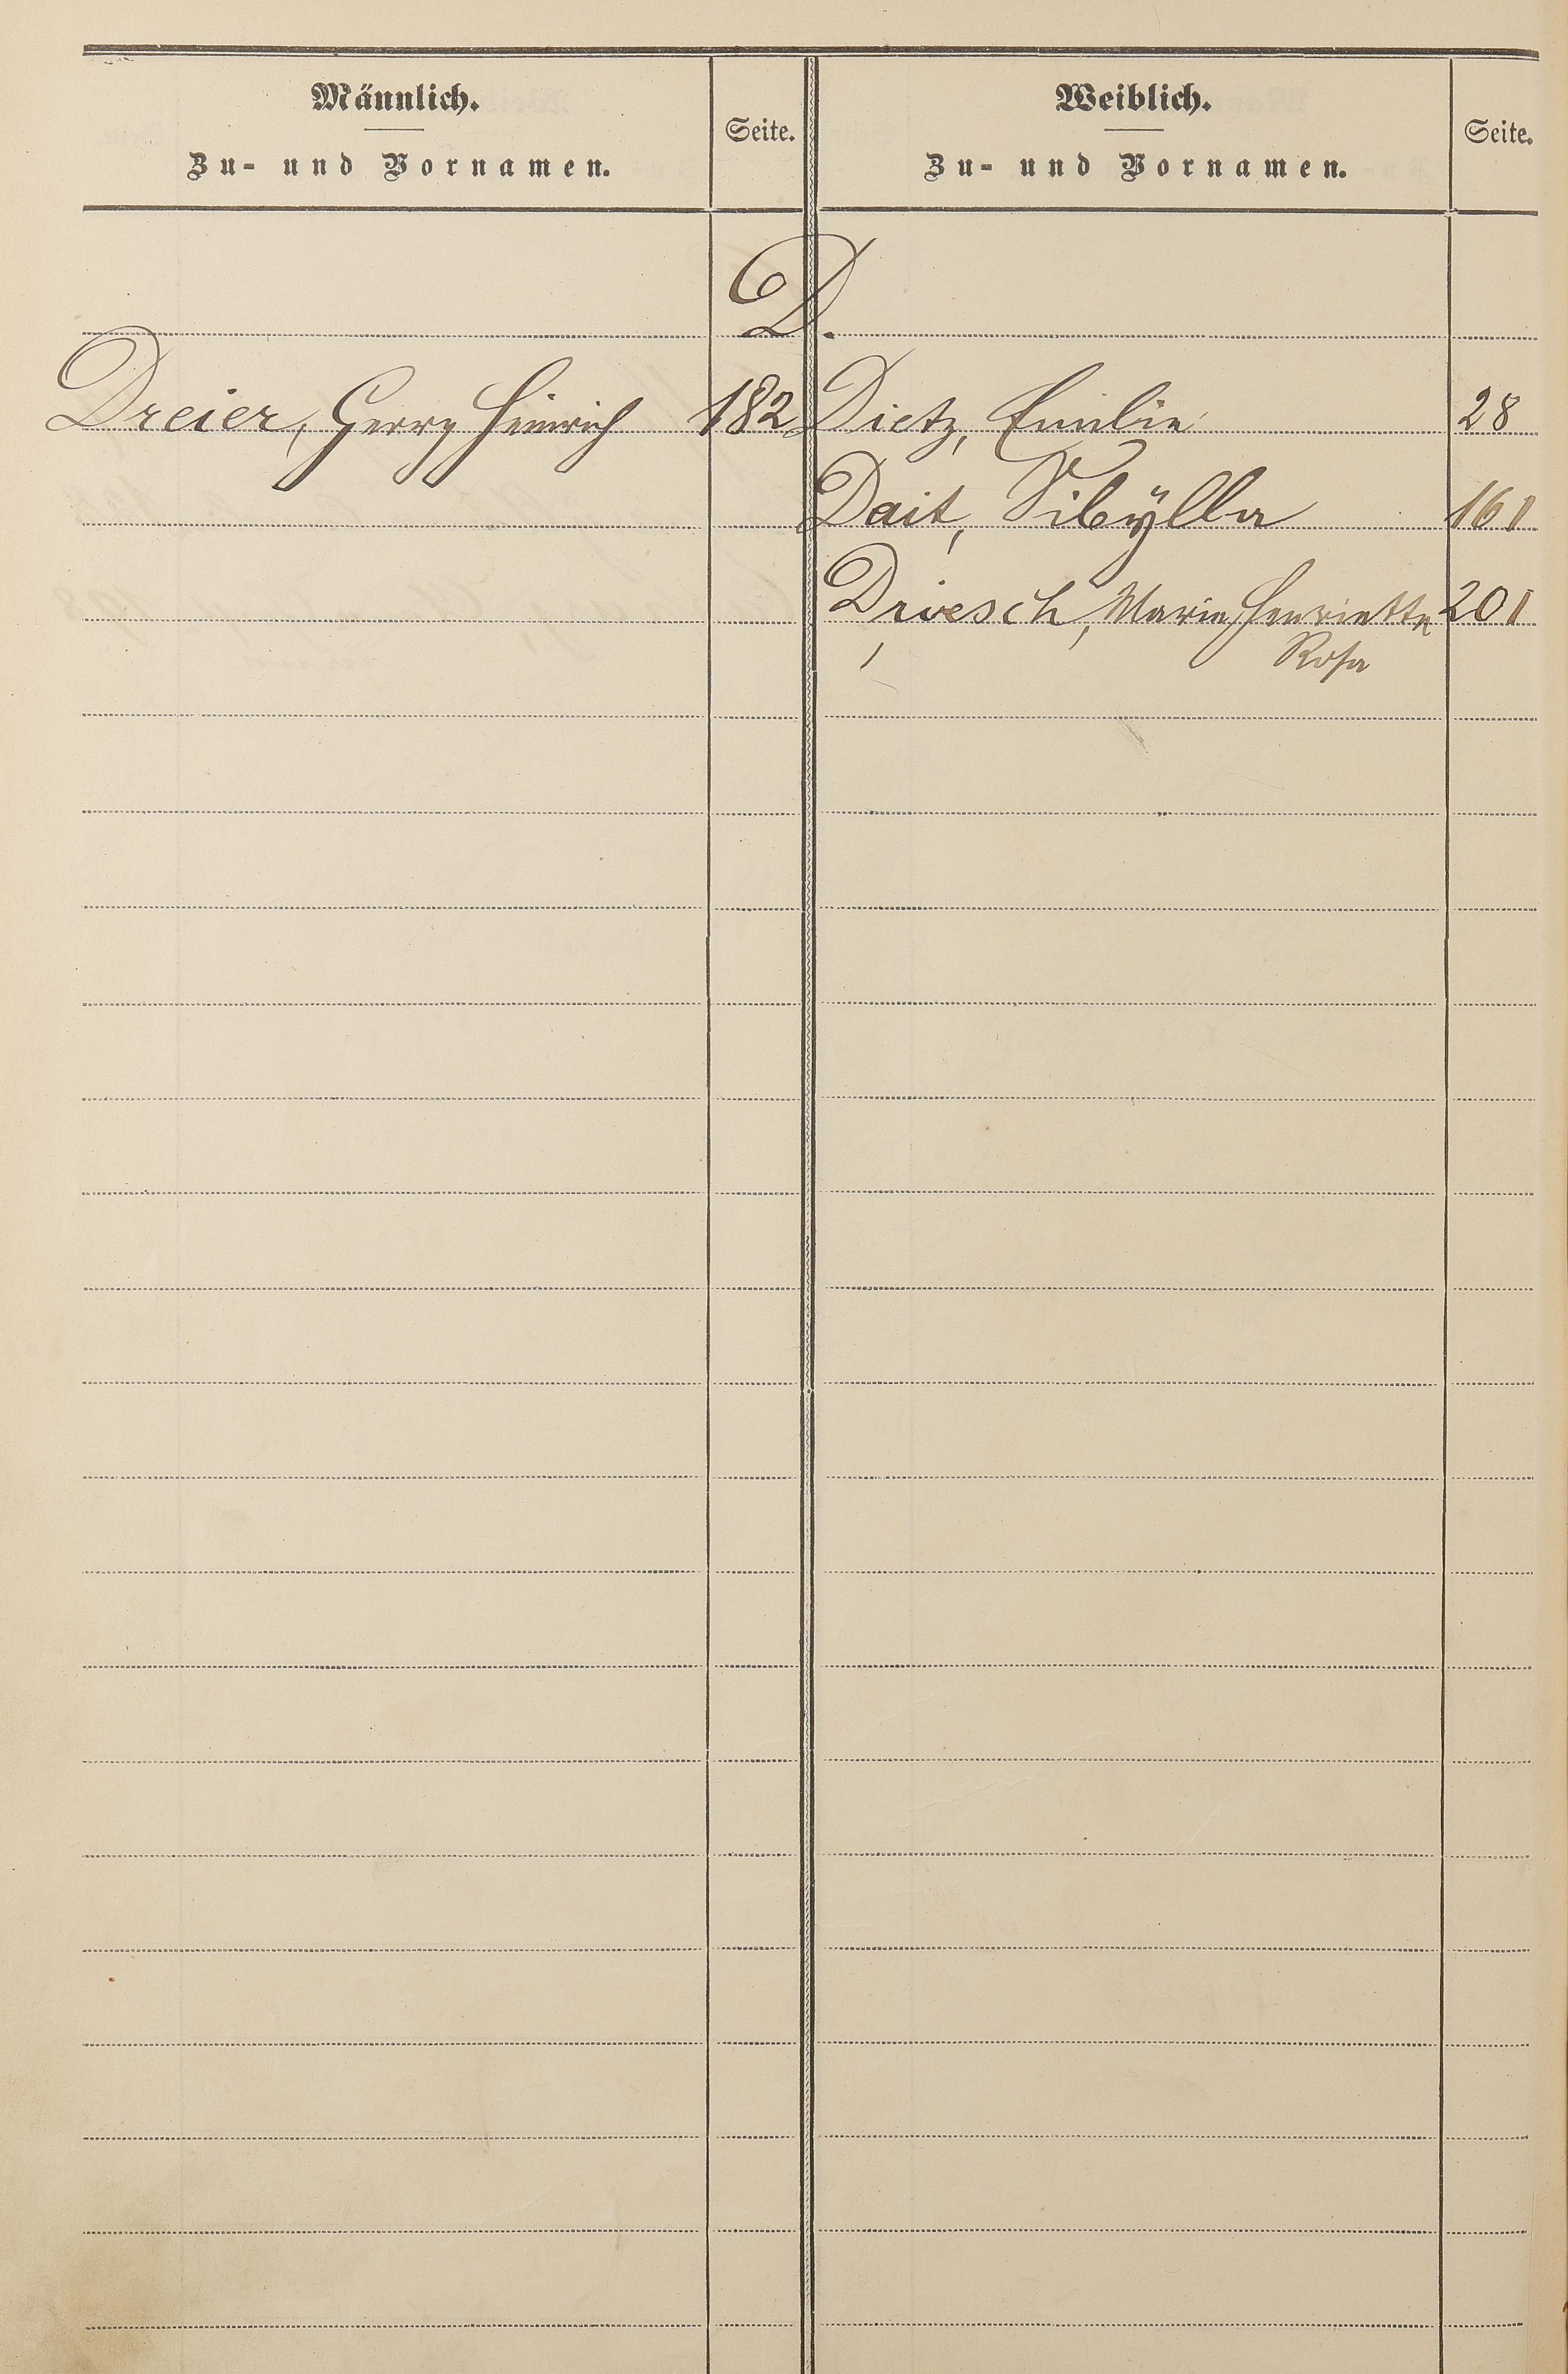 Männlich.
Zu- und Vornamen.
Seite.
Weiblich.
Zu- und Vornamen.
Seite.
D.
Dreier, Georg Heinrich 182
Dietz, Emilie 28
Dait, Sibÿlla 161
Driesch, Marie Henriette 201
Rosa